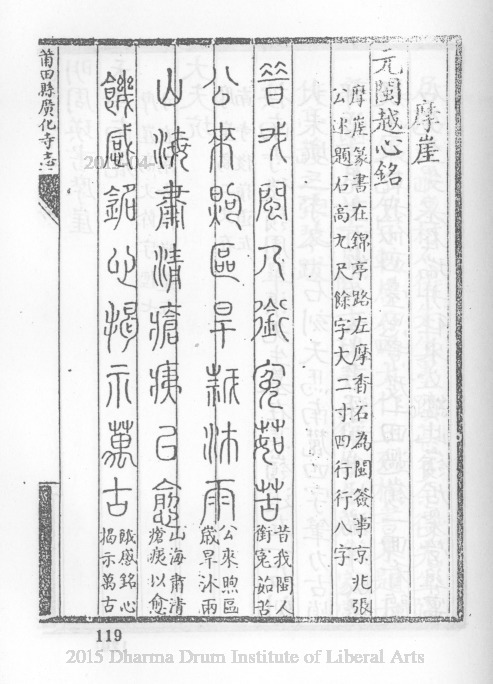 摩崖
元閩越心銘
摩崖篆書在錦亭路左摩香石為閩僉事京兆張
公述題石高九尺餘字大二寸四行行八字
昔我閩人銜冤茹苦
昔我閩人
銜冤茹苦
公來煦區旱沐雨
公來煦區
歲旱沐雨
山海肅清瘡痍㠯愈
山海肅清
瘡痍以愈
饑感銘心揭示萬古
感銘心
揭示萬古
莆田縣廣化寺志
119
2015 Dharma Drum Institute of Liberal Arts